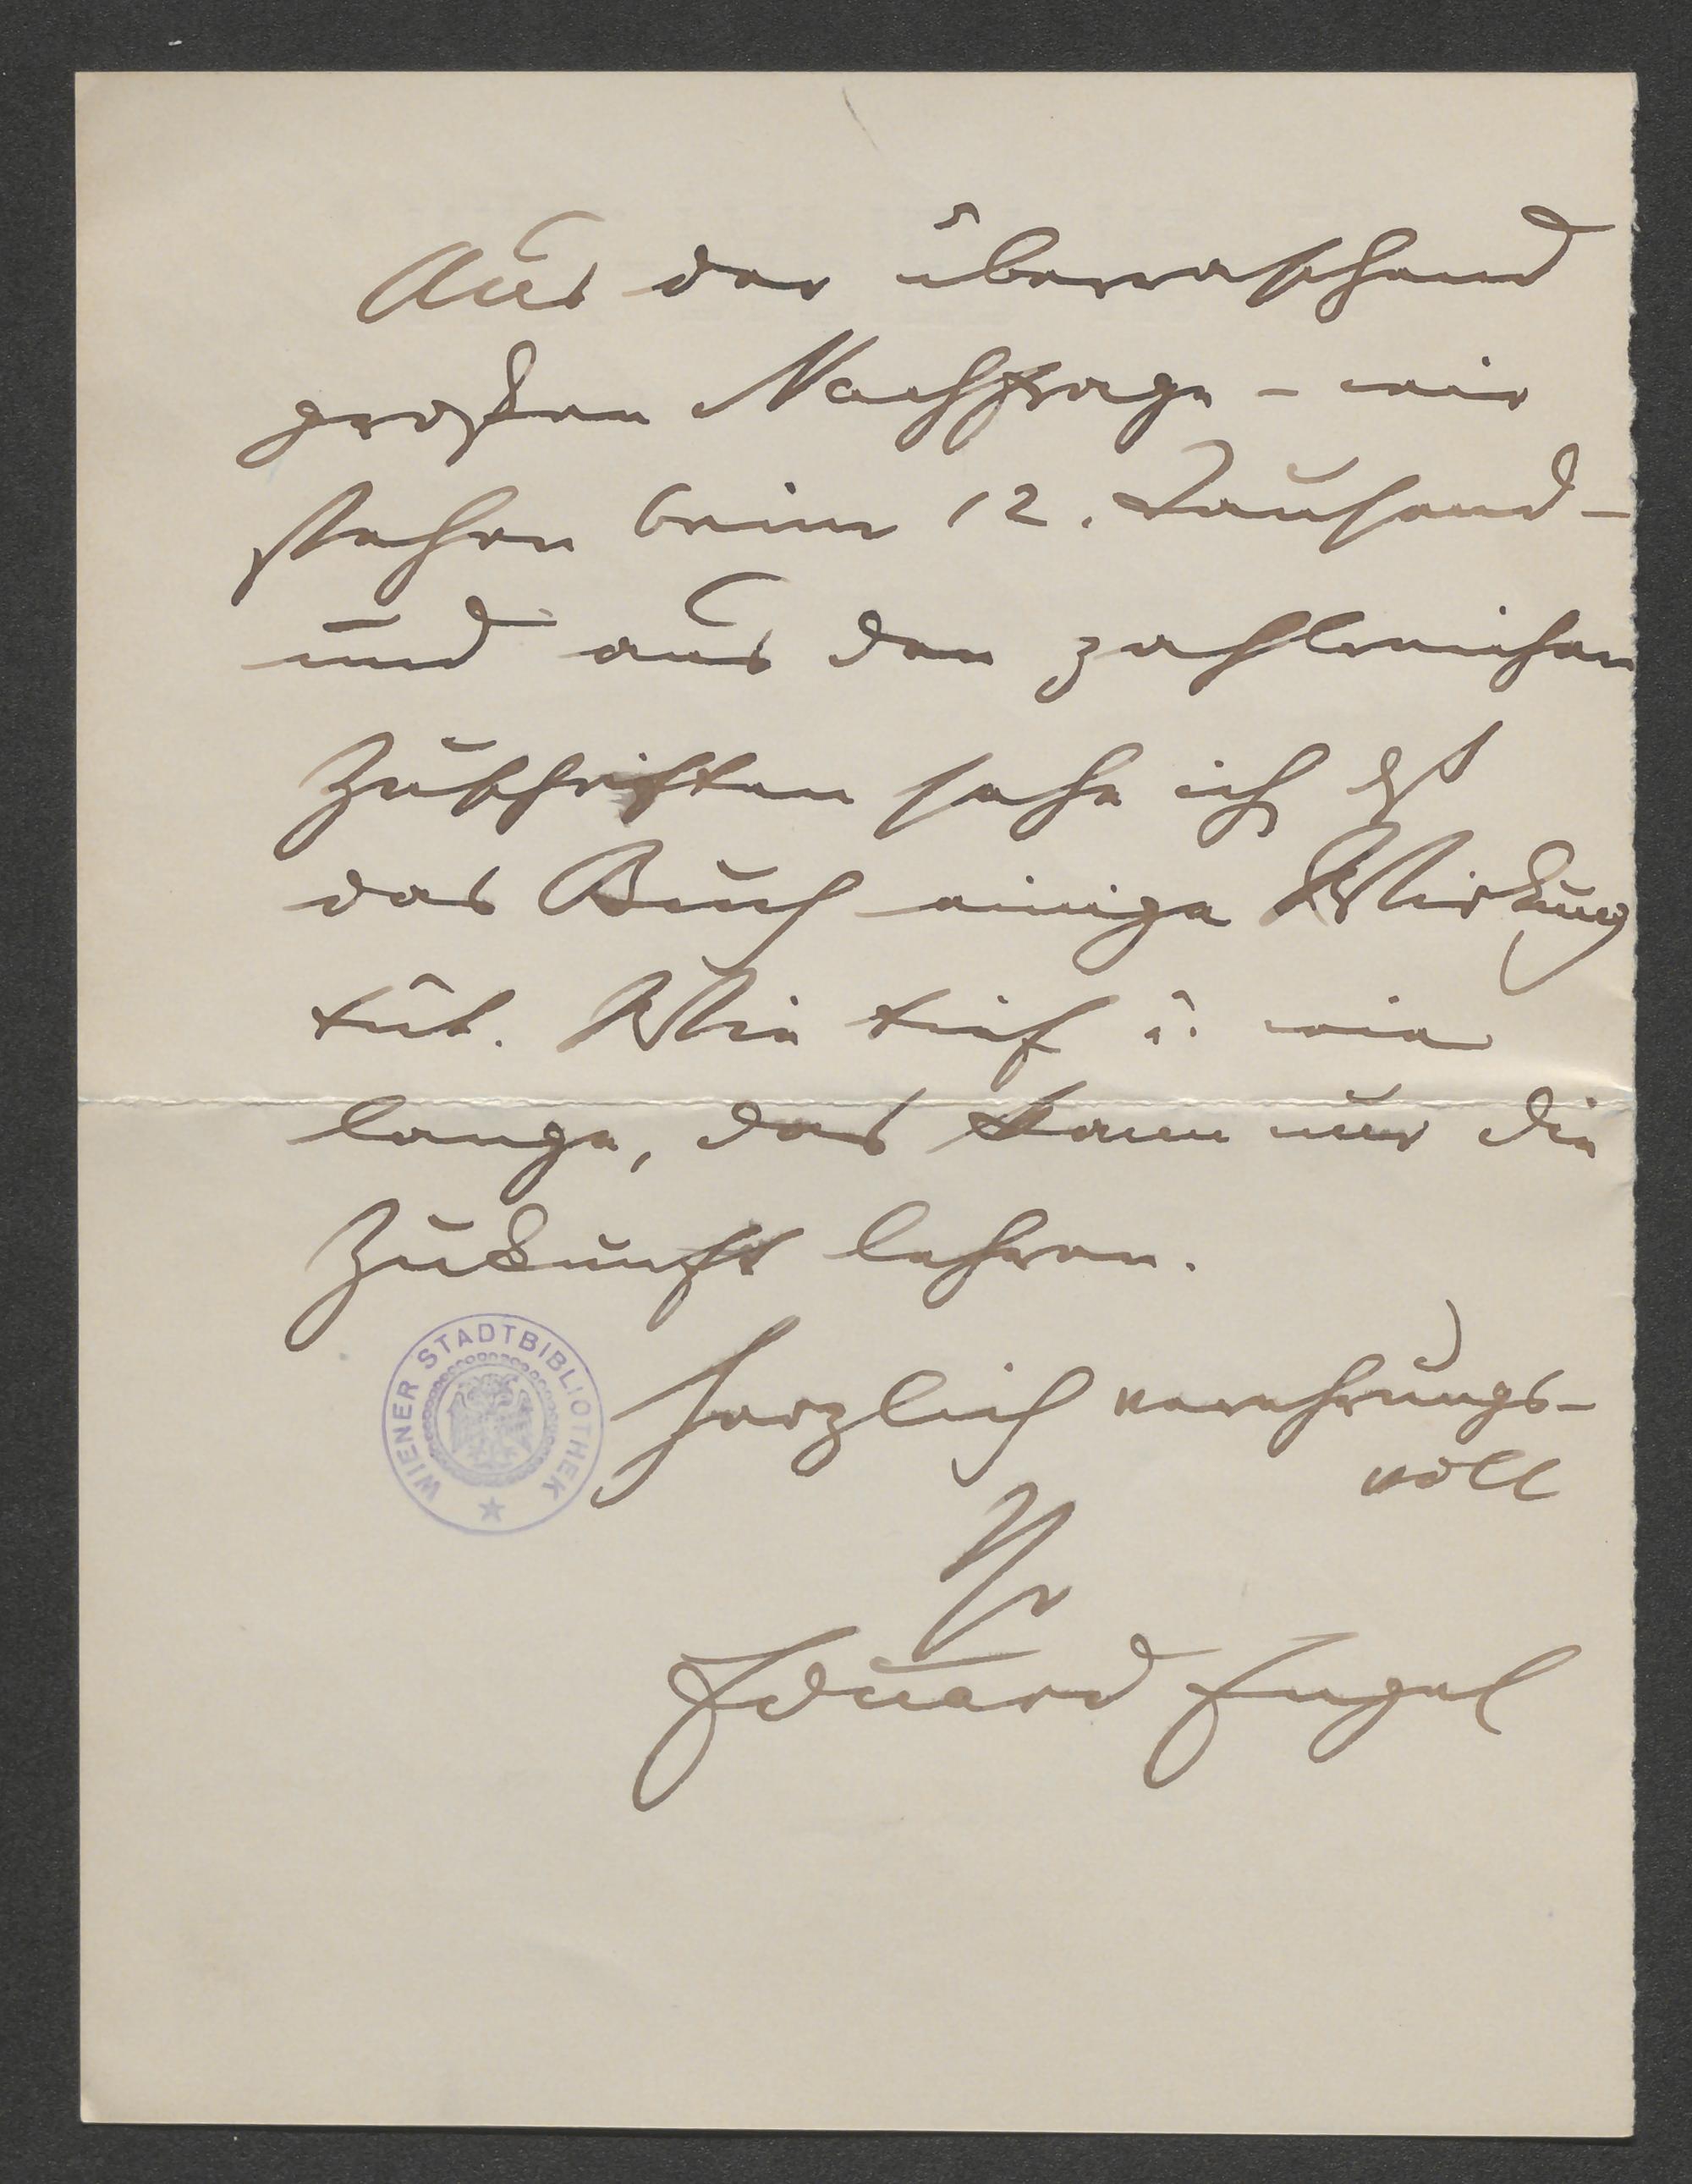 Aus der überraschend
großen Nachfrage – wir
stehen beim 12. Tausend –
und aus den zahlreichen
Zuschriften sehe ich, dß
das Buch einige Wirkung
tut. Wie tief u. wie
lange, das kann nur die
Zukunft lehren.
Herzlich verehrungs-
voll
Ihr
Eduard Engel
WIENER STADTBIBLIOTHEK